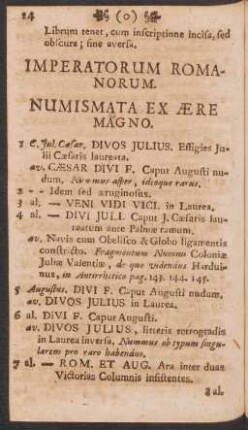 14 (o)
Librum tenet, cum inscriptione incisa, sed
obscura; sine aversa.
IMPERATORUM ROMA-
NORUM.
NUMISMATA EX ÆRE
MAGNO.
1 C. Jul. Cæsar. DIVOS JULIUS. Effigies Ju-
lii Cæsaris laureata.
av. CÆSAR DIVI F. Caput Augusti nu-
dum. Nummus asper, idioque rarus.
2 - - Idem sed æruginosus.
3 al. — VENI VIDI VICI. in Laurea.
4 al. — DIVI JULI. Caput J. Cæsaris lau-
reatum ante Palmæ ramum.
av. Navis cum Obelisco & Globo ligamentis
constricto. Fragmentum Nummi Coloniæ
Juliæ Valentiæ, de quo videndus Hardui-
nus, in Antirrhetico pag. 143. 144. 145.
5 Augustus. DIVI F. Caput Augusti nudum.
av. DIVOS JULIUS in Laurea.
6 al. DIVI F. Caput Augusti.
av. DIVOS JULIUS, litteris retrogradis
in Laurea inversa. Nummus ob typum singu-
larem pro raro habendus.
7 al. — ROM. ET AUG. Ara inter duas
Victorias Columnis insistentes.
8 al.